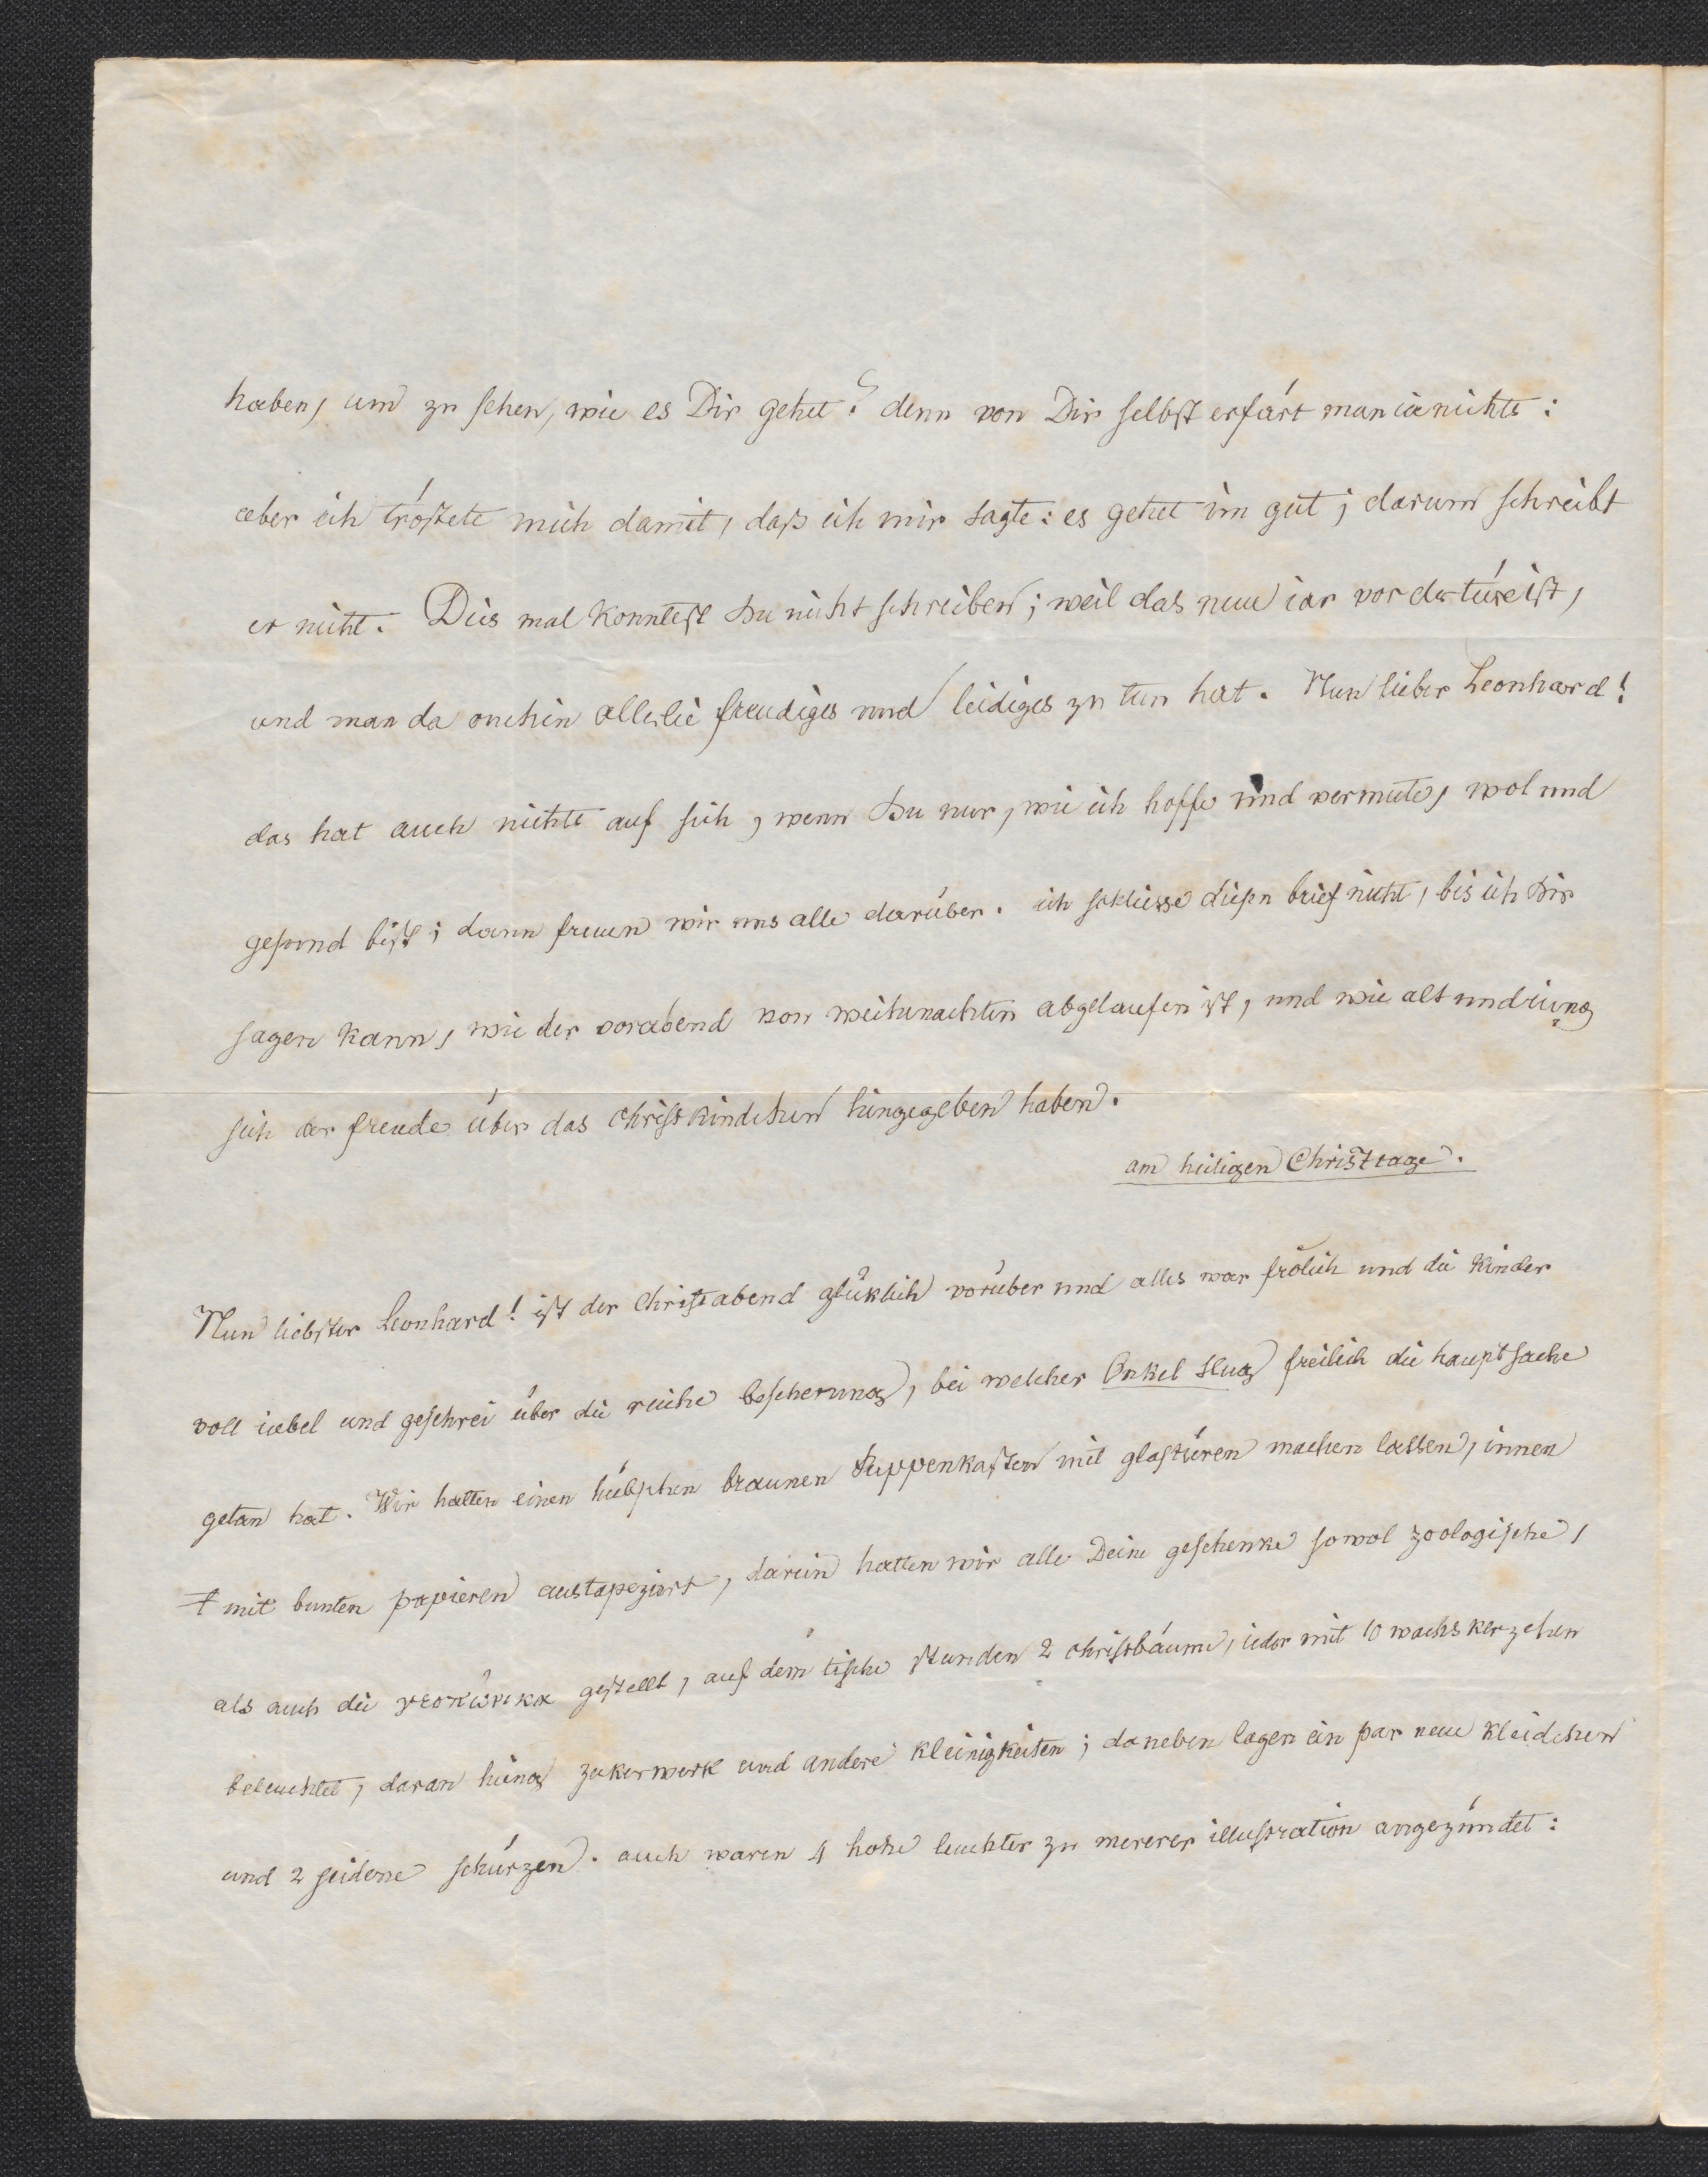 haben, um zu sehen, wie es Dir gehet? denn von Dir selbst erfárt man ia nichts:
aber ich trőstete mich damit, daß ich mir sagte: es gehet im gut; darum schreibt
er nicht. Dies mal konntest Du nicht schreiben; weil das neue iar vor der türe ist,
und man da onehin allerlei freudiges und leidiges zu tun hat. Nun lieber Leonhard!
das hat auch nichts auf sich, wenn Du nur, wie ich hoffe und vermute, wol und
gesund bist; dann freuen wir uns alle darüber. ich schliesse diesen brief nicht, bis ich Dir
sagen kann, wie der vorabend von weihenachten abgelaufen ist, und wie alt und iung
sich der freude über das christkindchen hingegeben haben.
am heiligen Christtage.
Nun liebster Leonhard! ist der christabend glüklich vorüber und alles war frölich und die kinder
voll iubel und geschrei über die reiche bescherung, bei welcher Onkel Hug freilich die hauptsache
getan hat. Wir hatten einen hübschen braunen Puppenkasten mit glastüren machen lassen, innen
mit bunten papieren austapeziert, darein hatten wir alle Deine geschenke sowol zoologische,
als auch die gestellt, auf dem tische stunden 2 christbäume, ieder mit 10 wachskerzchen
beleuchtet, daran hieng zukerwerk und andere kleinigkeiten; daneben lagen ein par neue kleidchen
und 2 seidene schürzen. auch waren 4 hohe leuchter zu mererer illustration angezündet: